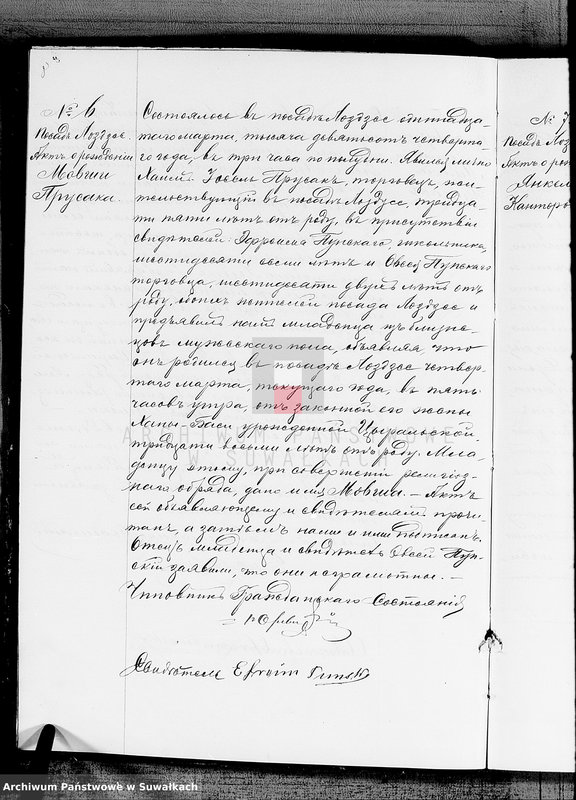 № 6
Посадъ Лоздзее.
Актъ о рожденіи
Мовши
Прусака.
Состоялось въ посадѣ Лоздзее
тогомарта, тысяча девятьсотъ четверта-
го года, въ три часа по полудни. Явился лично
Хаимъ Іосель Прусакъ, торговецъ, жи-
тельствующій въ посадѣ Лоздзее, тридца-
ти пяти лѣтъ отъ роду, въ присутствіи
свидѣтелей: Эфроима Пунскаго, школьника,
шестидесяти семи лѣтъ и Овсея Пунскаго
торговца, шестидесяти двухъ лѣтъ отъ
роду, обоихъ жителей посада Лоздзее и
предъявилъ намъ младенца изъ близне-
цовъ мужескаго пола, объявляя что
онъ родился въ посадѣ Лоздзее четвер-
таго марта, текущаго года, въ пять
часовъ утра, отъ законной его жены
Ханы-Баси урожденной
тридцати восьми лѣтъ отъ роду. Мла-
денцу этому, при совершеніи религіоз-
наго обряда, дано имя Мовша. – Актъ
сей объявляющему и свидѣтелямъ прочи-
танъ, а затѣмъ нами и ими подписанъ.
Отецъ младенца и свидѣтель Овсей Пун-
скій заявили, что они неграмотны. –
Чиновникъ Гражданскаго Состоянія
Свидѣтель Efroim Punski
№ 7
Посадъ Лоз
Актъ о рож
Янкел
Канторо
ARCHIWUM PAŃSTWOWE
W SUWAŁKACH
Archiwum Państwowe w Suwałkach